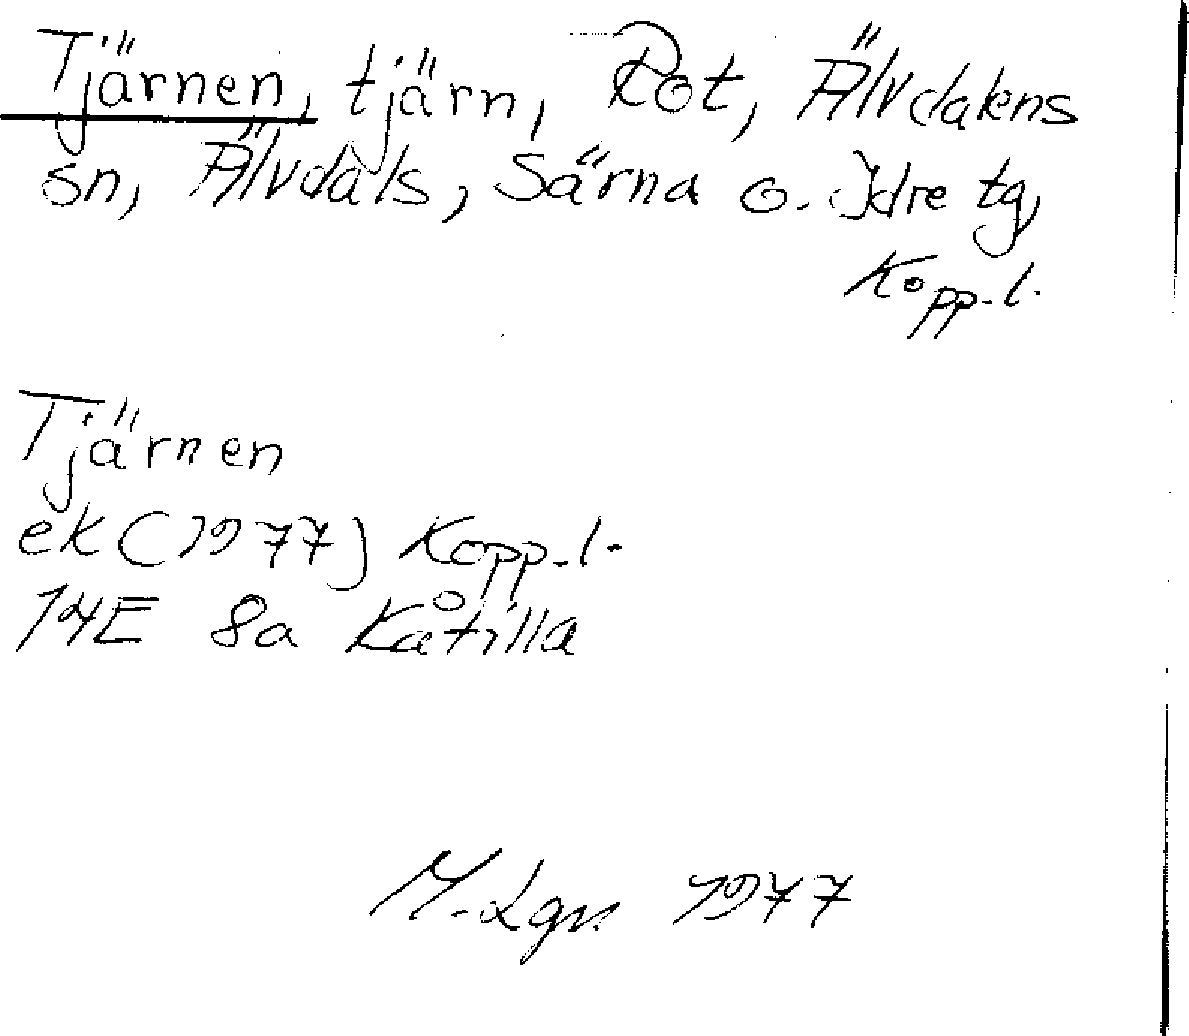 Tjärnen, tjärn, Rot, Älvdalens
sn, Älvdals, Särna o. Idre tg,
Kopp. l.
Tjärnen
ek (1977) Kopp. l.
14E 8a Kåtilla
M. Lgn 1977